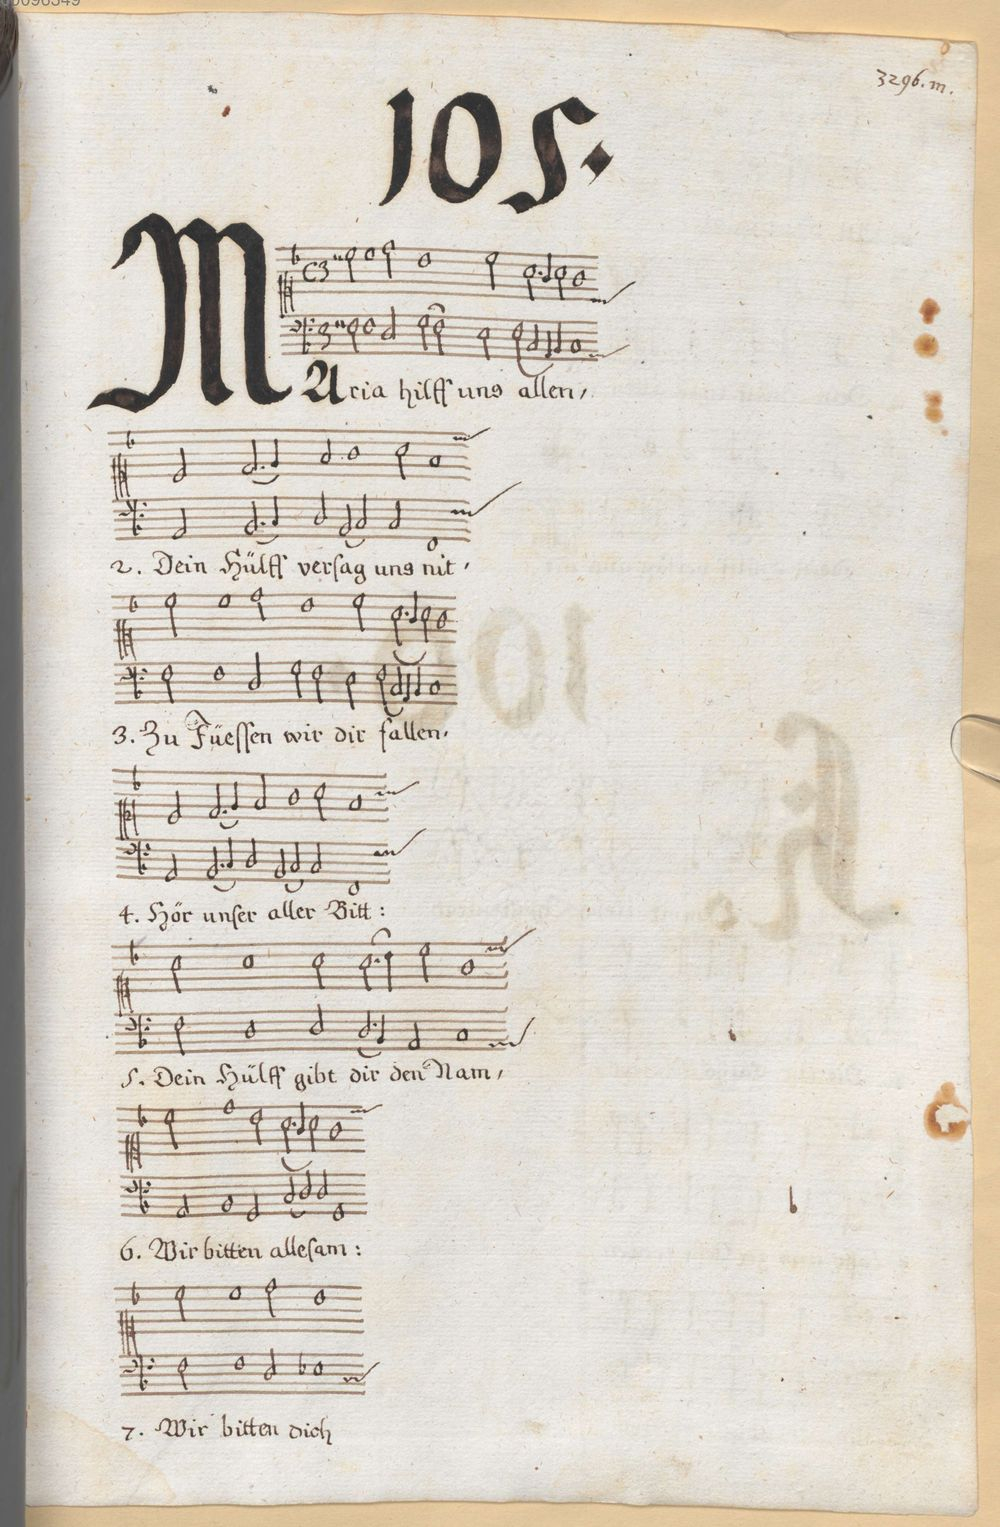 3296.m.
105.
MAria hilff uns allen,
2. Dein Hülff versag uns nit,
3. Zu Füessen wir dir fallen,
4. Hör unser aller Bitt:
5. Dein Hülff gibt dir den Nam,
6. Wir bitten allesam:
7. Wir bitten dich